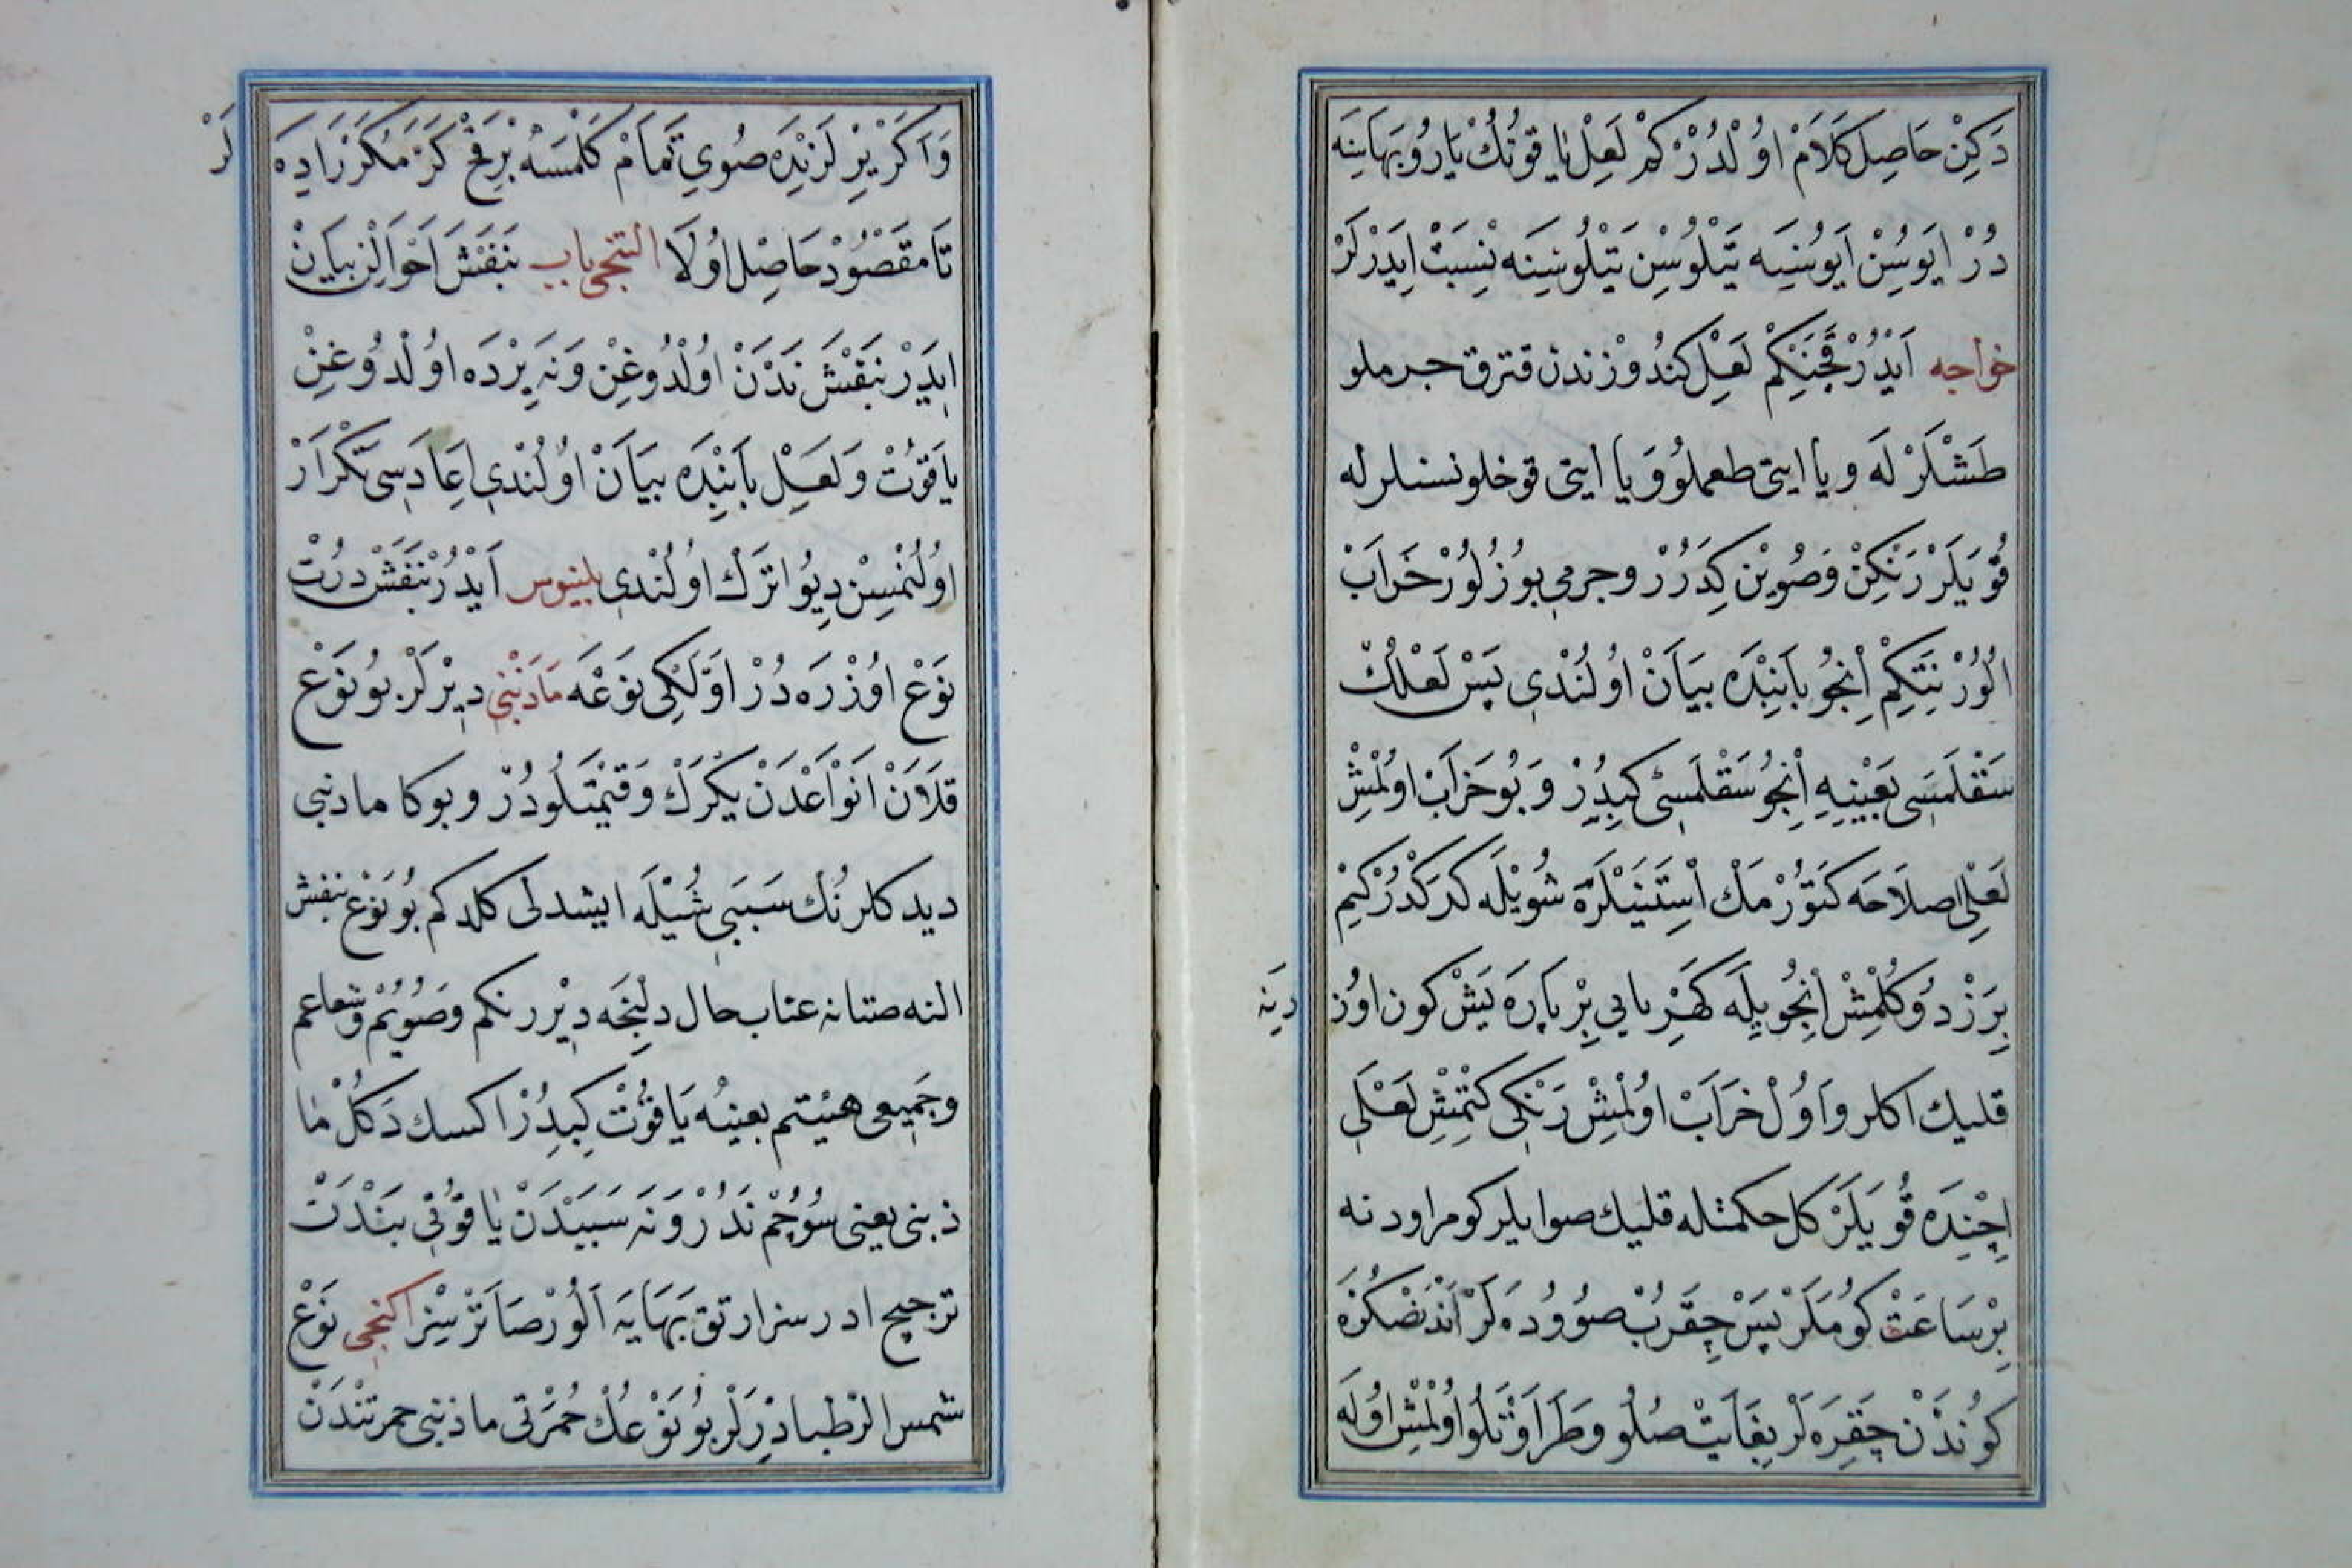 دَكِنْ حَاصِلِ كَلَامْ اوُلْدُرْ كِمْ لَعِلْ يَاقوُتُكْ يَارُو بَهَاسِنَه
دُرْ اَيوُسِنْ اَيوُسِنَه يَتْلُوسِنْ يَتْلُوسِنَه نِسْبَتْ اِيدَرْلَرْ
خواجه اَيْدُرْ قَچَنْكِمْ لَعِلْ كَندُوزْندن قترق جرملو
طَشْلَرْ لَه ويا ايتى طعملو وَيا ايتى قوخلو نسنلر له
قُويَلَرْ رَنْكِنْ وَصُويِنْ كِدَرُرْ وجرمى بوُزُلوُرْ خَرَابْ
الوُرْ نِتَكِمْ اِنْجوُ بَابِنْدَه بيَانْ اوُلُنْدِى پَسْ لَعْلُكْ
سَقْلَمَسِى بعَيْنِهِ اِنْجوُ سَقْلَمَسِى كِبِدُرْ وَبُو خَرَابْ اوُلْمِشْ
لَعْلِى اِصلَاحَه كَتوُرْمَكْ اِسْتَيَنْلَرَه شوُيْلَه كَرَكْدُرْ كِيمْ
بِرَزْ دُوكُلْمِشْ اِنْجوُ يِلَه كَهْرِبايِى بِرْ پَارَه يَشْ كون اوُزَ
دِينَه
قليك اكلر وَاوُلْ خَرَابْ اوُلْمِشْ رَنْكِى كِتْمِشْ لَعْلِى
اِچِنْدَه قوُيَلَرْ كل حكمتله قليك صوايلر كومر اودنه
بِرْ سَاعَتْ كوُمَرْلَرْ پَسْ چِقَرُبْ صوُودَه لَرْ اَنْدَنْصُكْرَه
كوُنْدَنْ چِقَرَه لَرْ بغَايَتْ صُلُو وطَرَاوَتْلُو اوُلْمِشْ اوُلَه
لَرْ
وَاَكَرْ بِرْ لَرْنِدَه صُويِى تَمَامْ كَلْمَسَه بْرقَچْ كَرَّ مُكَرَّرْ اِيدَه
تَا مَقْصُودْ حَاصِلْ اوُلَا التنجى باب بَنَفْشْ اَحْوَالِنْ بيَانْ
اِيدَرْ بَنَفْشْ نَدَنْ اوُلْدُوغِنْ وَنَه يِرْدَه اوُلْدُوغِنْ
يَاقوُتْ وَلَعِلْ بَابِنْدَه بيَانْ اوُلُنْدِى اِعَادَسِى تَكْرَارْ
اوُلُنْمَسِنْ دِيُو اتَرْكْ اوُلُنْدِى بلينوس اَيْدُرْ بَنَفْشْ دُرْتْ
نوَعْ اوُزْرَه دُرْ اَوَّلَكِى نوَعَه مَاذَنْبِى دِيرْلَرْ بُو نَوْعْ
قلَانْ انَوْاعْدَنْ يِكْرَكْ وَقيْمَتلُودُرْ وبوكا ماذنبى
ديدكلرنُك سَبَبِى شُيْلَه ايشدلى كلدكم بوُ نَوْعْ بنفش
النه صتنانه عتاب حال دلِنْجَه دِيْر رنكم وَصُويُمْ وشعاعم
وجَمِيعِى هيئتم بعينه يَاقوُتْ كِبِدُرْ اكسك دَكُلْ مَا
ذنبى يعنى سوُچُمْ نَدُرْ وَنَه سَبَبْدَنْ يَاقوُتِى بَنْدَنْ
ترجيح ادرسز ارتق بَهَايَه اَلُورْ صَاتَرْسِزْ اكنجى نَوْعْ
شمس الرّطبا دِرْلَرْ بوُ نَوْعُكْ حُمْرَتِى ماذنبى حمرتنْدَنْ